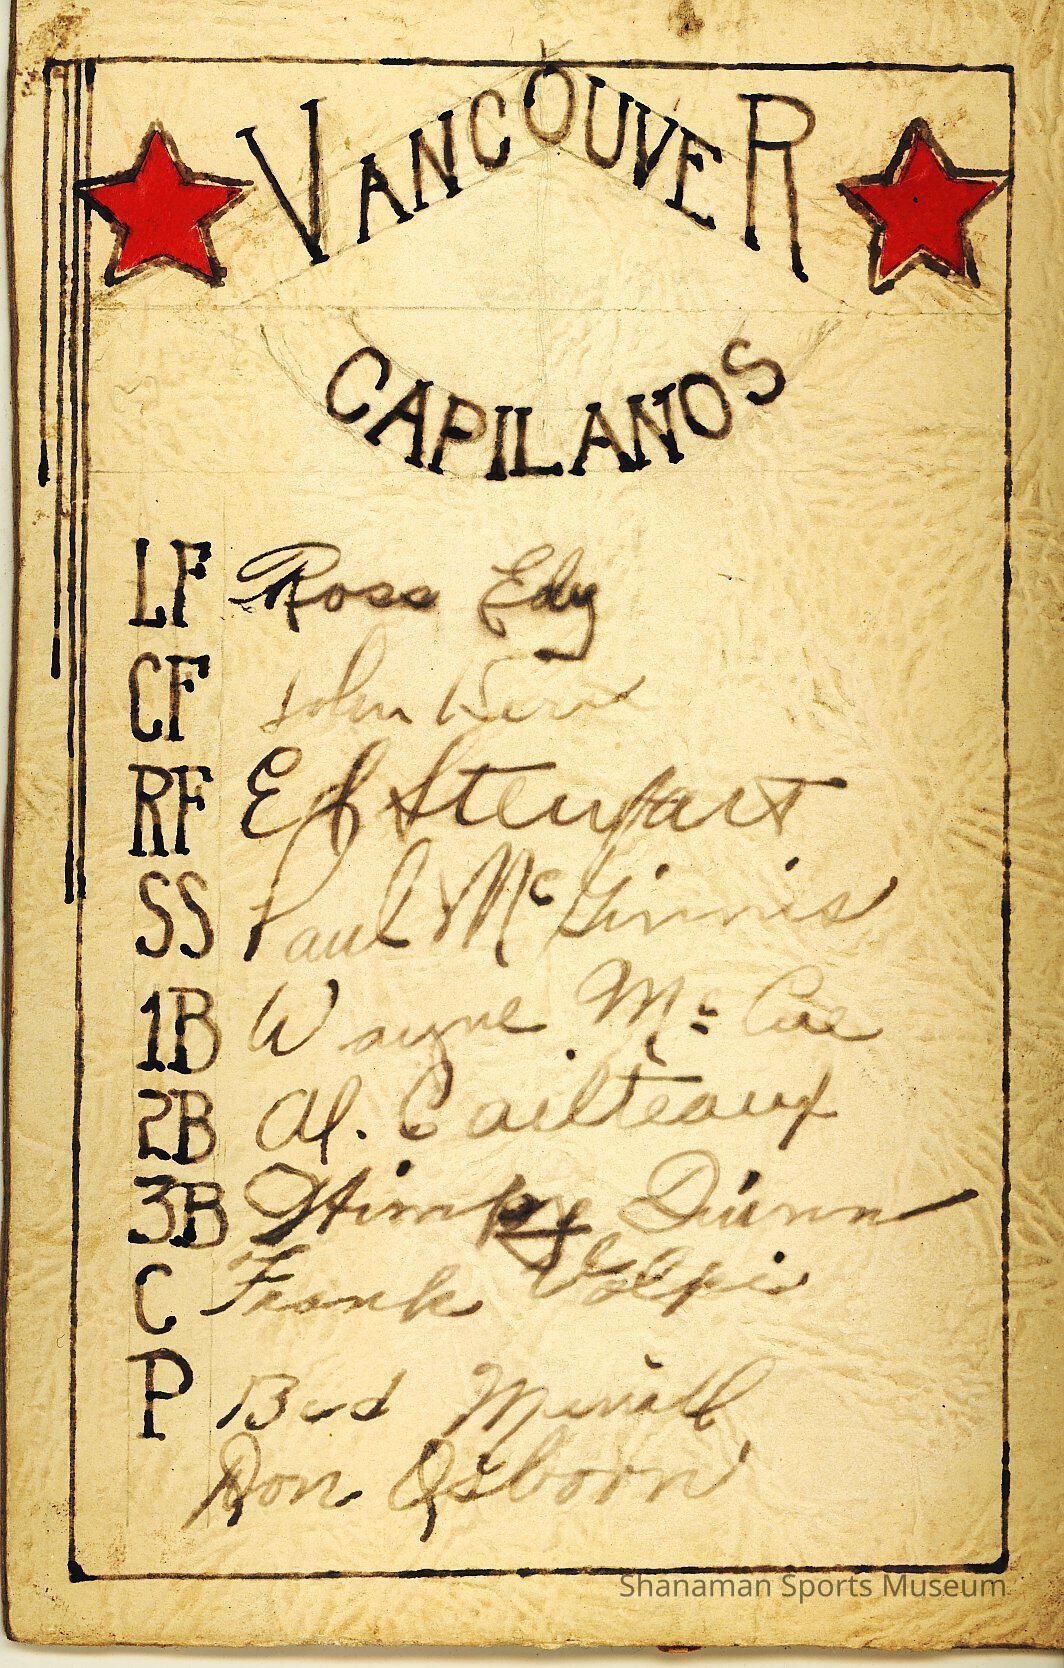 VANCOUVER
CAPILANOS
LF Ross Edy
CF John Kerr
RF Ed Stewart
SS Paul McGinnis
1B Wayne McCue
2B Al. Cailteaux
3B Stimpy Dunn
C Frank Volpi
P Bud
Don Osborn
Shanaman Sports Museum